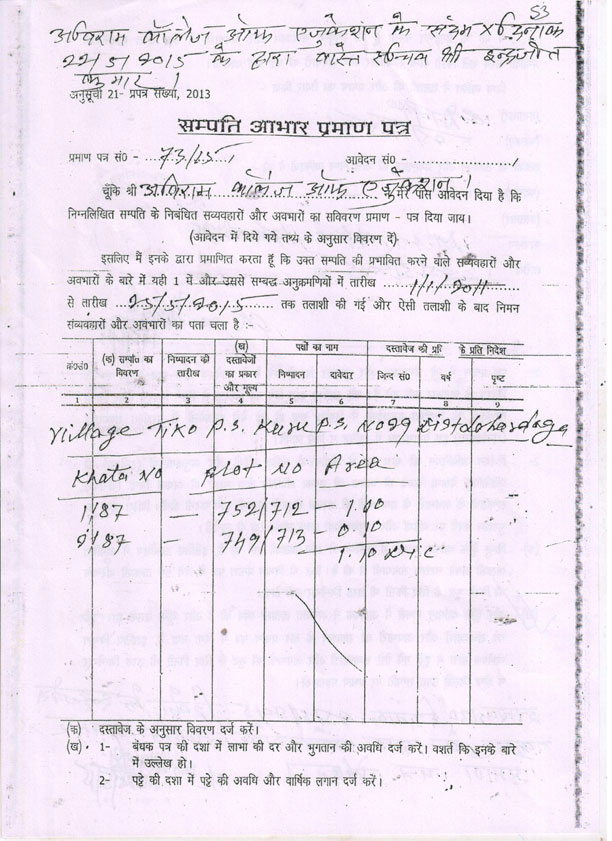 53
अविराम कॉलेज ऑफ एजुकेशन के संदर्भ X दिनांक
22/5/2015 के द्वारा वास्ते सचिव श्री इन्द्रजीत
कुमार।
अनुसूची 21- प्रपत्र संख्या, 2013
सम्पति आभार प्रमाण पत्र
प्रमाण पत्र सं० - ...73/15... आवेदन सं० - ..............................
चूंकि श्री अविराम कॉलेज ऑफ एजुकेशन। ने मेरे पास आवेदन दिया है कि
निम्नलिखित सम्पति के निबंधित सव्यवहारों और अवभारों का सविवरण प्रमाण - पत्र दिया जाय।
(आवेदन में दिये गये तथ्य के अनुसार विवरण दें)
इसलिए मैं इनके द्वारा प्रमाणित करता हूँ कि उक्त सम्पति की प्रभावित करने वाले सव्यवहारों और
अवभारों के बारे में यही 1 में और उससे सम्बद्ध अनुक्रमणियों में तारीख ....1/1/2011....
से तारीख ...25/5/2015... तक तलाशी की गई और ऐसी तलाशी के बाद निमन
संव्यवहारों और अवभारों का पता चला है :-
क्र०सं० (क) सम्प० का विवरण निष्पादन की तारीख (ख) दस्तावेजों का प्रकार और मूल्य पक्षों का नाम दस्तावेज की प्रति के प्रति निदेश
निष्पादन दावेदार जिल्द सं० वर्ष पृष्ट
1 2 3 4 5 6 7 8 9
Village Tiko P.S. Kuru P.S. No 99 Dist Lohardaga
Khata No Plot No Area
1/87 — 752/712 - 1.00
2/87 — 749/713 - 0.10
1.10 Dic
(क) दस्तावेज के अनुसार विवरण दर्ज करें।
(ख) 1- बंधक पत्र की दशा में लाभा की दर और भुगतान की अवधि दर्ज करें। वशर्त कि इनके बारे
में उल्लेख हो।
2- पट्टे की दशा में पट्टे की अवधि और वार्षिक लगान दर्ज करें।